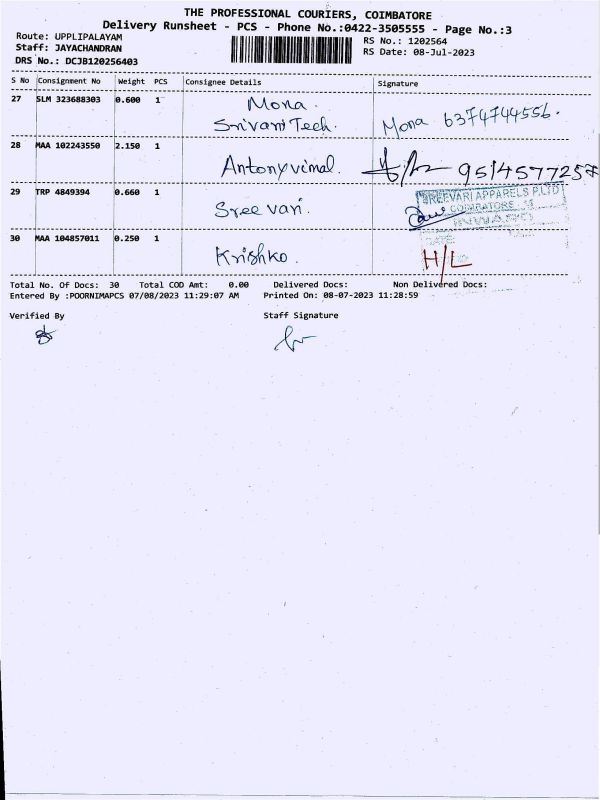 THE PROFESSIONAL COURIERS, COIMBATORE
Delivery Runsheet - PCS - Phone No.:0422-3505555 - Page No.:3
Route: UPPLIPALAYAM
Staff: JAYACHANDRAN
DRS No.: DCJB120256403
RS No.: 1202564
RS Date: 08-Jul-2023
S No Consignment No Weight PCS Consignee Details Signature
27 SLM 323688303 0.600 1 Mona.
Srivari Tech. Mona 6374744556.
28 MAA 102243550 2.150 1
Antonyvimal. 9514577257
29 TRP 4849394 0.660 1
Sreevari. SREEVARI APPARELS P.LTD
COIMBATORE
30 MAA 104857011 0.250 1
Krishko. H/L
Total No. Of Docs: 30 Total COD Amt: 0.00 Delivered Docs: Non Delivered Docs:
Entered By :POORNIMAPCS 07/08/2023 11:29:07 AM Printed On: 08-07-2023 11:28:59
Verified By Staff Signature